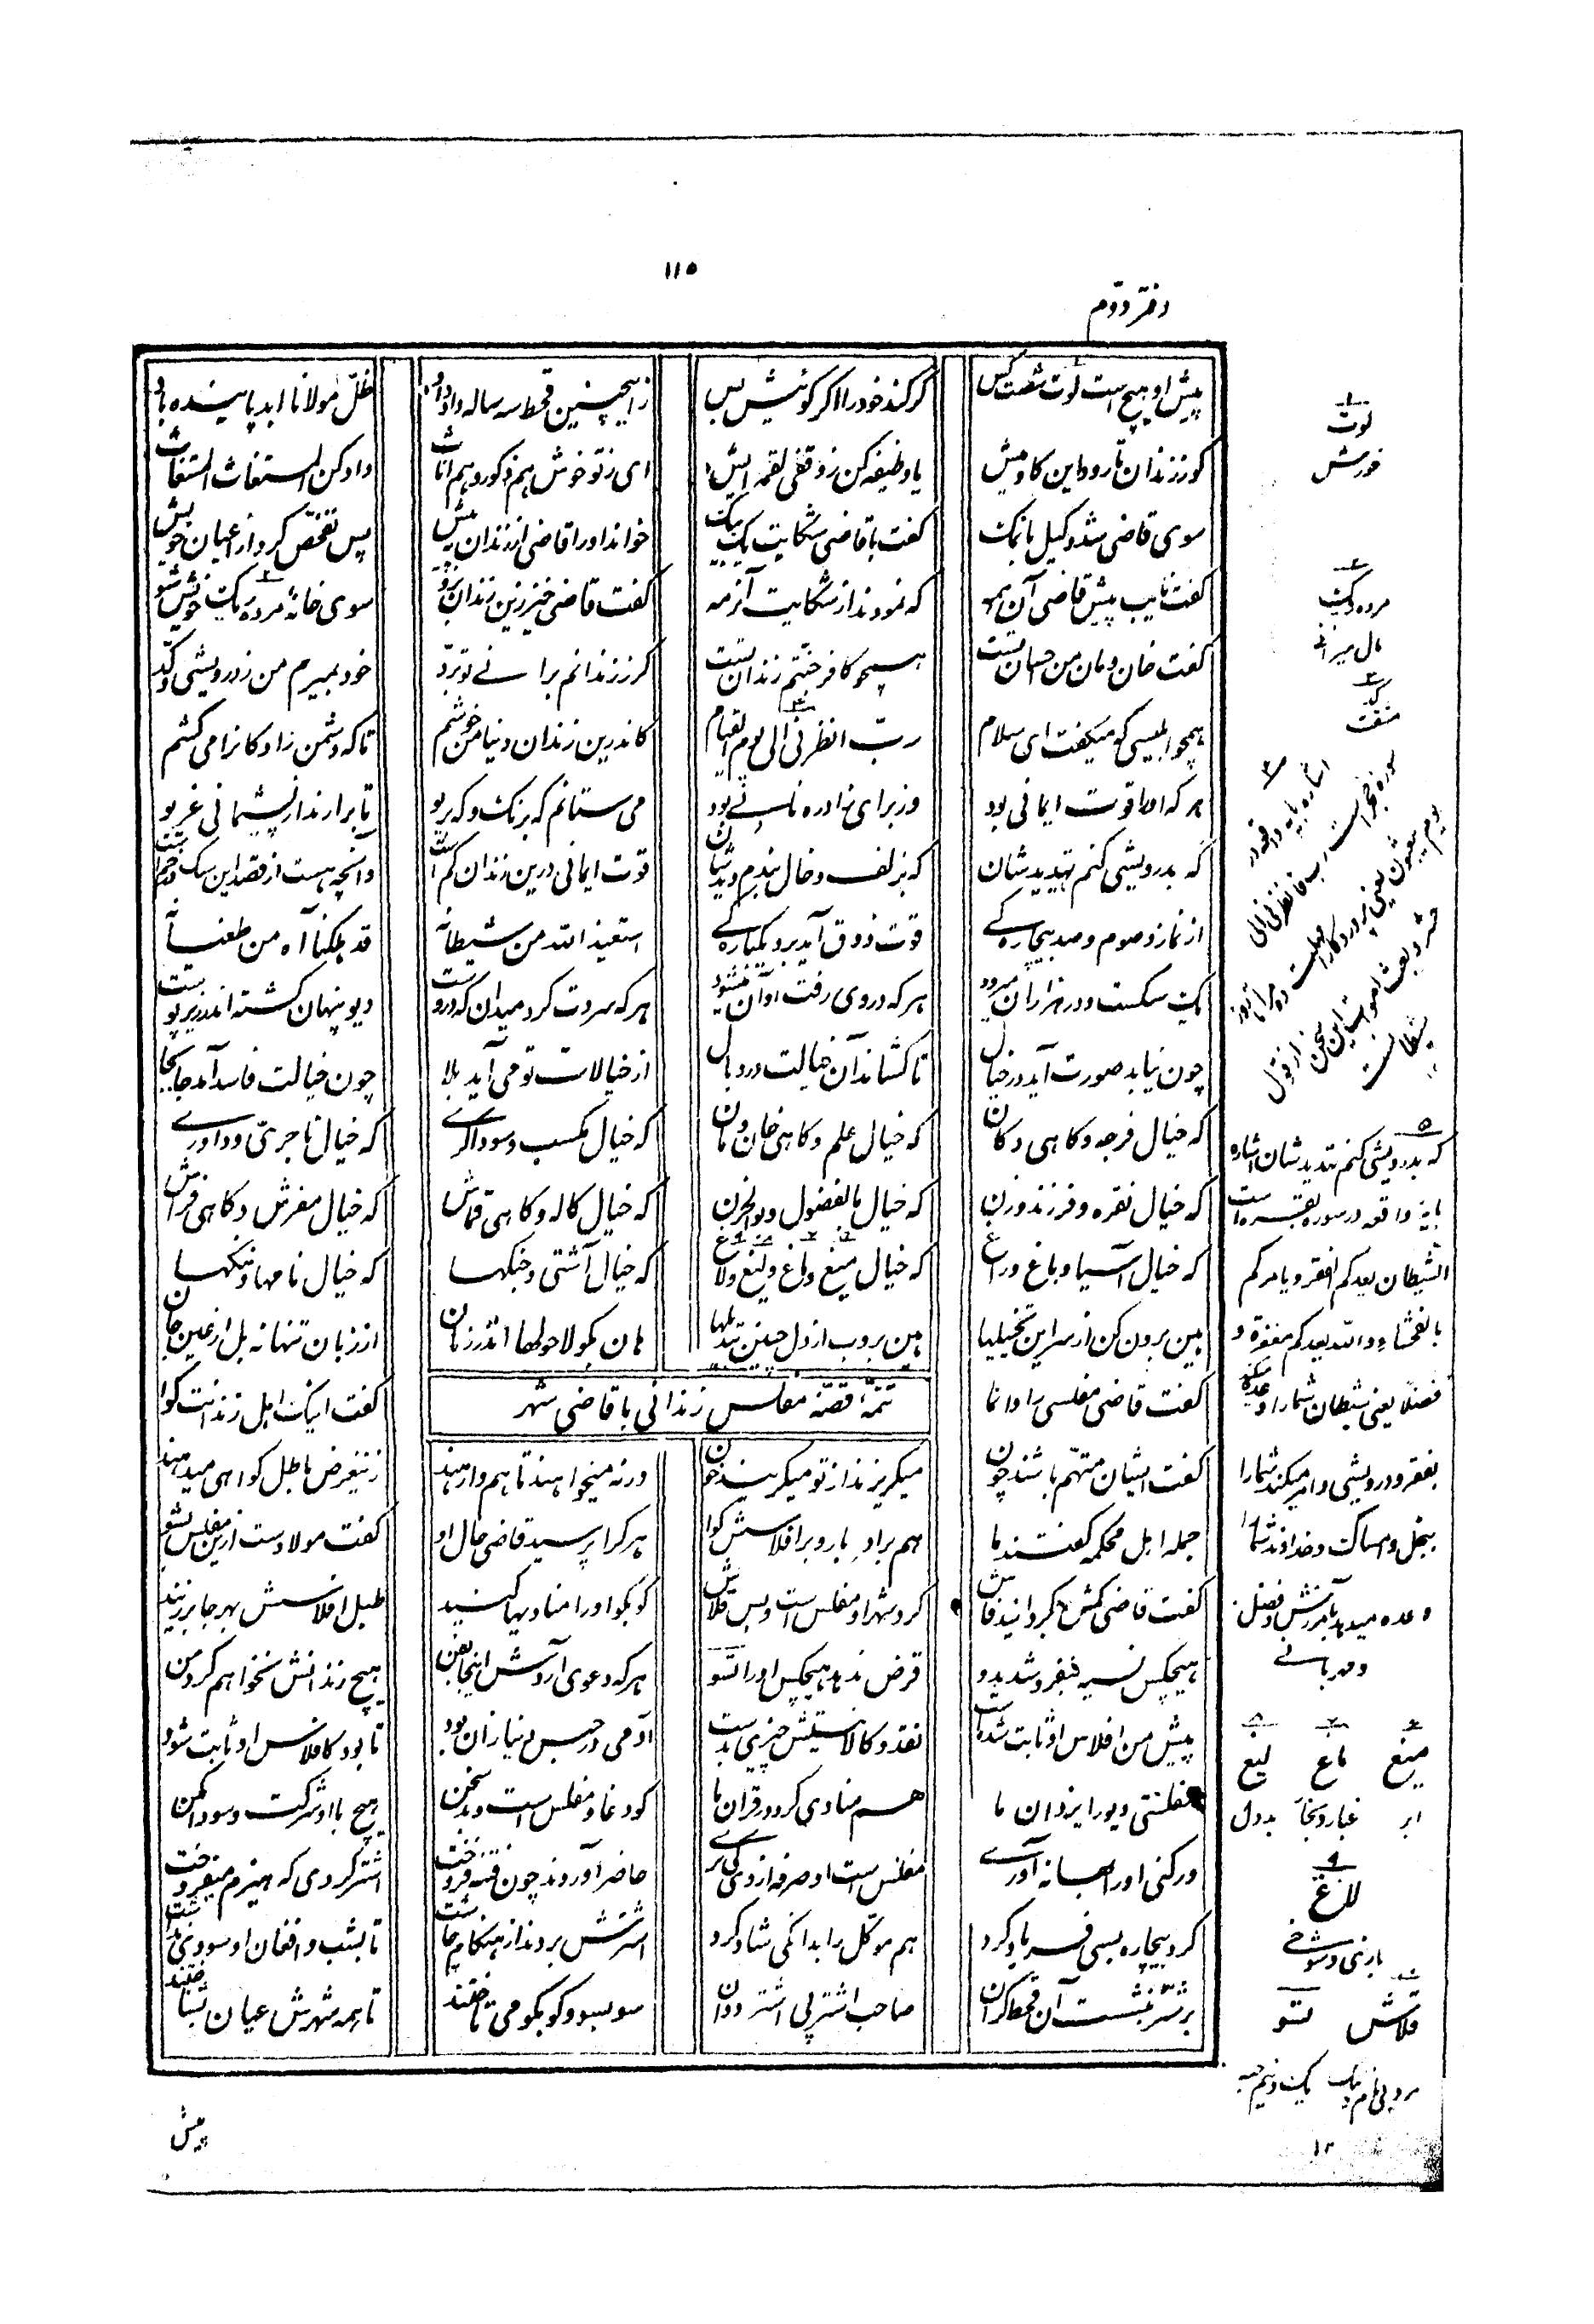 ١١٥
دفتر دوّم
پیش او هیچ است لوت شصت کس   کر کند خود را اکر کوئیش بس   زاینچنین قحط سه ساله داد داد   ظلّ مولانا ابد پاینده باد
کو ز زندان تا رود این کاومیش   یا وظیفه کن ز وقفی لقمه ایش   ای ز تو خوش هم ذکور و هم اناث   داد کن المستغاث المستغاث
سوی قاضی شد وکیل با نمک   کفت با قاضی شکایت یک بیک   خواند او را قاضی از زندان به پیش   پس تفحّص کرد از اعیان خویش
کفت نایب پیش قاضی آن همه   که نمودند از شکایت آن رمه   کفت قاضی خیز زین زندان برو   سوی خانهٔ مرده ریک خویش شو
کفت خان و مان من احسان تست   همچو کافر جنّتم زندان تست   کر ز زندانم برانی تو برد   خود بمیرم من ز درویشی و کدّ
همچو ابلیسی که میکفت ای سلام   ربّ انظرنی الی یوم القیام   کاندرین زندان دنیا من خوشم   تا که دشمن زادکانرا می کشم
هر که او را قوت ایمانی بود   وز برای زاد ره نانی بود   می ستانم که بزنک و که بریو   تا برارند از پشیمانی غریو
که بدرویشی کنم تهدیدشان   که بزلف و خال بندم دیدشان   قوت ایمانی درین زندان کم است   وآنچه هست از قصد این سک در خم است
از نماز و صوم و صد بیچاره کی   قوت ذوق آید برد یکباره کی   استعیذ الله من شیطانه   قد هلکنا آه من طغیانه
یک سکست و در هزاران میرود   هر که در وی رفت او آن میشود   هر که سردت کرد میدان که دروست   دیو پنهان کشته اندر زیر پوست
چون نیابد صورت آید در خیال   تا کشاند آن خیالت در وبال   از خیالات تو می آید بلا   چون خیالت فاسد آمد جابجا
که خیال فرجه و کاهی دکان   که خیال علم و کاهی خان و مان   که خیال مکسب و سوداکری   که خیال تاجری و داوری
که خیال نقره و فرزند و زن   که خیال بالفضول و بوالحزن   که خیال کاله و کاهی قماش   که خیال مفرش و کاهی فراش
که خیال آسیا و باغ و راغ   که خیال میغ و ماغ و لیغ و لاغ   که خیال آشتی و جنکها   که خیال نامها و ننکها
هین برون کن از سر این تخییلها   هین بروب از دل چنین تبدیلها   هان بکو لاحولها اندر زمان   از زبان تنها نه بل از عین جان
تتمّهٔ قصّهٔ مفلس زندانی با قاضی شهر
کفت قاضی مفلسی را وانما   کفت اینک اهل زندانت کوا
کفت ایشان متّهم باشند چون   میکریزند از تو میکریند خون   ورنه میخواهند تا هم وارهند   زینغرض باطل کواهی میدهند
جمله اهل محکمه کفتند ما   هم بر ادبار و بر افلاسش کوا   هر کرا پرسید قاضی حال او   کفت مولا دست ازین مفلس بشو
کفت قاضی کش بکردانید فاش   کرد شهر او مفلس است و بس قلاش   کو بکو او را منادیها کنید   طبل افلاسش بهر جا برزنید
هیچکس نسیه نفروشد بدو   قرض ندهد هیچکس او را تسو   هر که دعوی آردش اینجا بفن   هیچ زندانش نخواهم کرد من
پیش من افلاس او ثابت شده است   نقد و کالا نیستش چیزی بدست   آدمی در حبس دنیا زان بود   تا بود کافلاس او ثابت شود
مفلسی دیو را یزدان ما   هم منادی کرد در قرآن ما   کو دغا و مفلس است و بد سخن   هیچ با او شرکت و سودا مکن
ور کنی او را بهانه آوری   مفلس است او صرفه از وی کی بری   حاضر آوردند چون فتنه فروخت   اشتر کردی که هیزم میفروخت
کرد بیچاره بسی فریاد کرد   هم موکّل را بدانکی شاد کرد   اشترش بردند از هنکام چاشت   تا بشب و افغان او سودی نداشت
بر شتر بنشست آن قحط کران   صاحب اشتر پی اشتر دوان   سوبسو و کوبکو می تاختند   تا همه شهرش عیان بشناختند
لوت
خورش
مرده ریک
مال میراثی
کدّ
مشقت
اشاره بآیه واقعه در
سوره حجر است رب فانظرنی الی
یوم یبعثون یعنی پروردکارا مهلت ده مرا تا روز
حشر و بعث اموات این سخن از قول
شیطانست
که بدرویشی کنم تهدیدشان اشاره
بآیه واقعه در سوره بقره است
الشیطان یعدکم الفقر و یامرکم
بالفحشاء والله یعدکم مغفرة و
فضلا یعنی شیطان شما را وعده میکند
بفقر و درویشی و امر میکند شما را
ببخل و امساک و خداوند شما را
وعده میدهد بآمرزش و فضل
و مهربانی
میغ   ماغ   لیغ
ابر   غبار و بخار   بددل
لاغ
بازی و شوخی
قلاش   تسو
مردبی نام و ننک   یک و نیم حبه
پیش